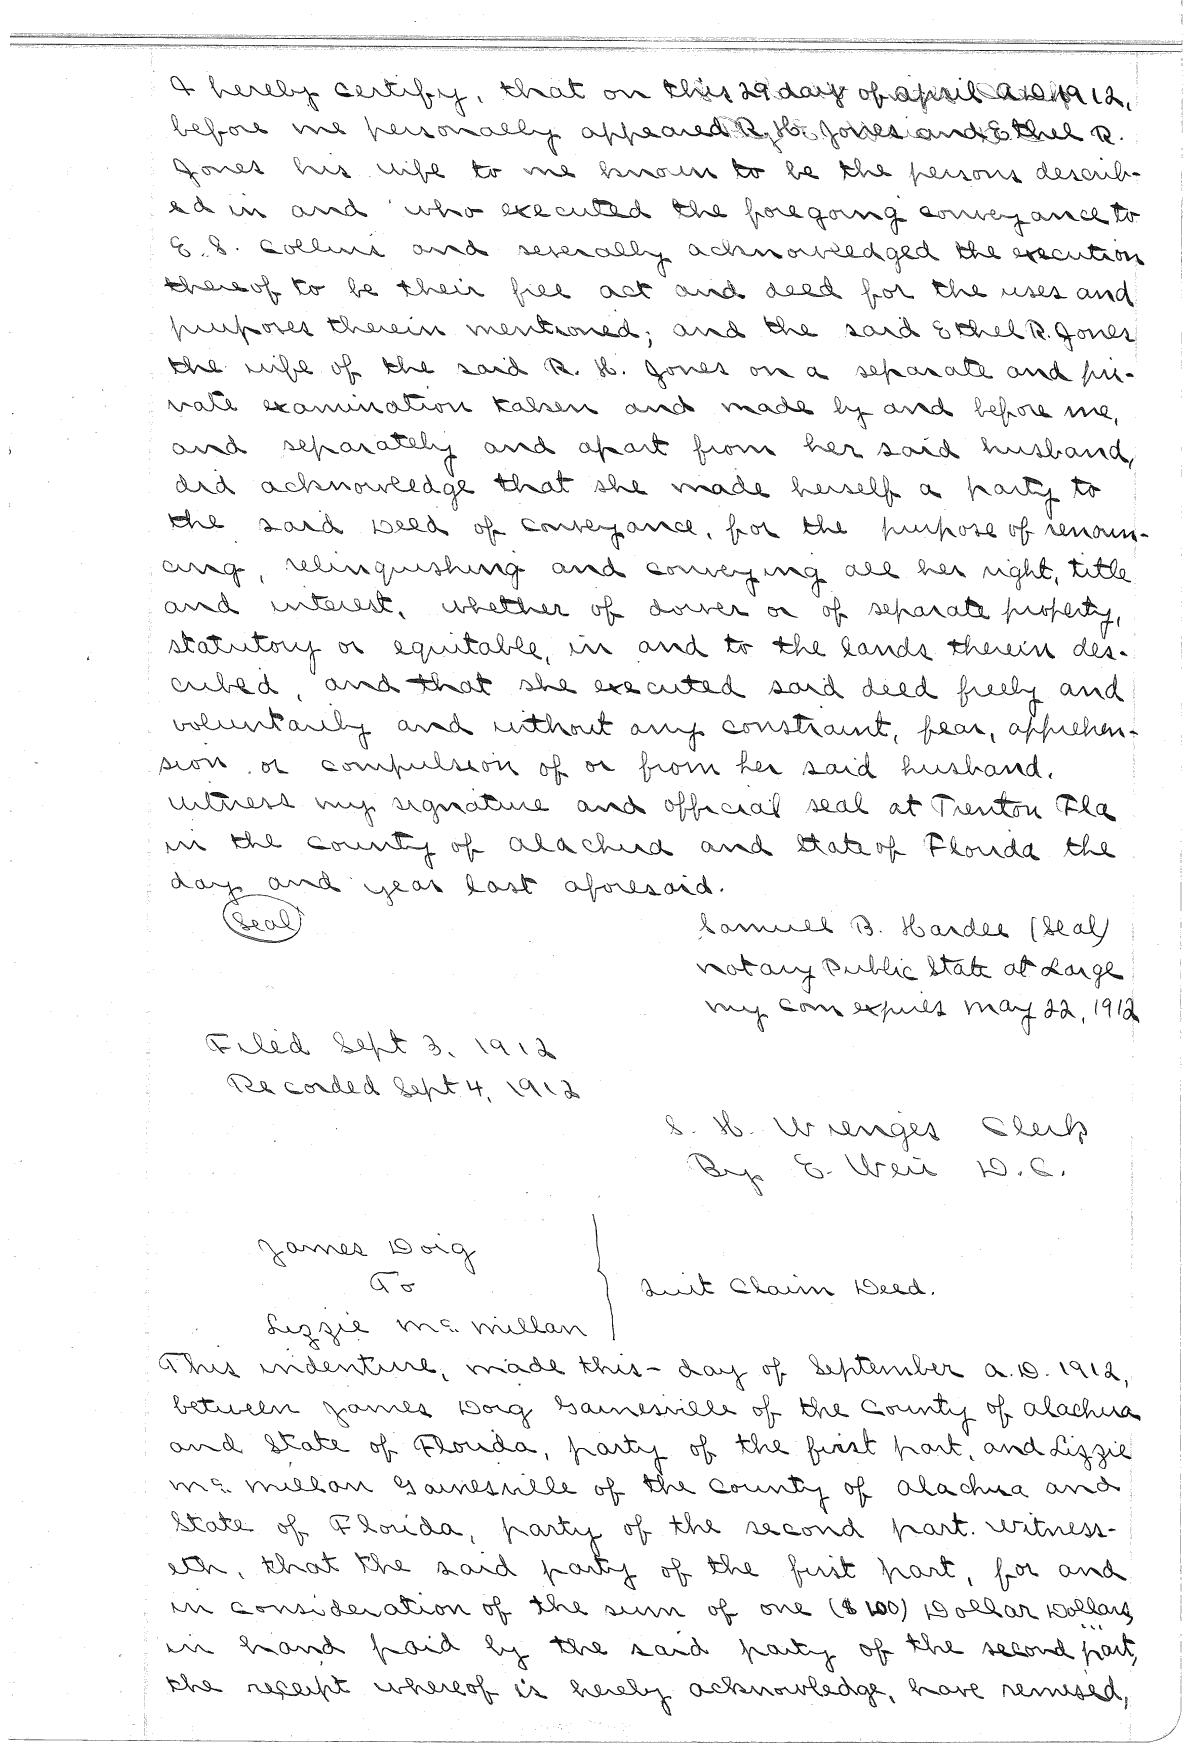 I hereby certify, that on this 29 day of april A.D. 1912,
before me personally appeared R. H. Jones and Ethel R.
Jones his wife to me known to be the persons describ-
ed in and who executed the foregoing conveyance to
E. S. Collins and severally acknowledged the execution
thereof to be their free act and deed for the uses and
purposes therein mentioned; and the said Ethel R. Jones
the wife of the said R. H. Jones on a separate and pri-
vate examination taken and made by and before me,
and separately and apart from her said husband,
did acknowledge that she made herself a party to
the said Deed of conveyance, for the purpose of renoun-
cing, relinquishing and conveying all her right, title
and interest, whether of dower or of separate property,
statutory or equitable, in and to the lands therein des-
cribed, and that she executed said deed freely and
voluntarily and without any constraint, fear, apprehen-
sion or compulsion of or from her said husband.
witness my signature and official seal at Trenton Fla
in the County of Alachua and State of Florida the
day and year last aforesaid.
(Seal)
Samuel B. Hardee (Seal)
Notary Public State at Large
my com expires May 22, 1912
Filed Sept 3. 1912
Recorded Sept 4, 1912
S. H. Wienges Clerk
By E. Weir D.C.
James Doig
To
Lizzie Mc. Millan
Quit Claim Deed.
This indenture, made this - day of September A.D. 1912,
between James Doig Gainesville of the County of Alachua
and State of Florida, party of the first part, and Lizzie
Mc. Millan Gainesville of the County of Alachua and
State of Florida, party of the second part. Witness-
eth, that the said party of the first part, for and
in consideration of the sum of one ($100) Dollar Dollars,
in hand paid by the said party of the second part,
the receipt whereof is hereby acknowledge, have remised,